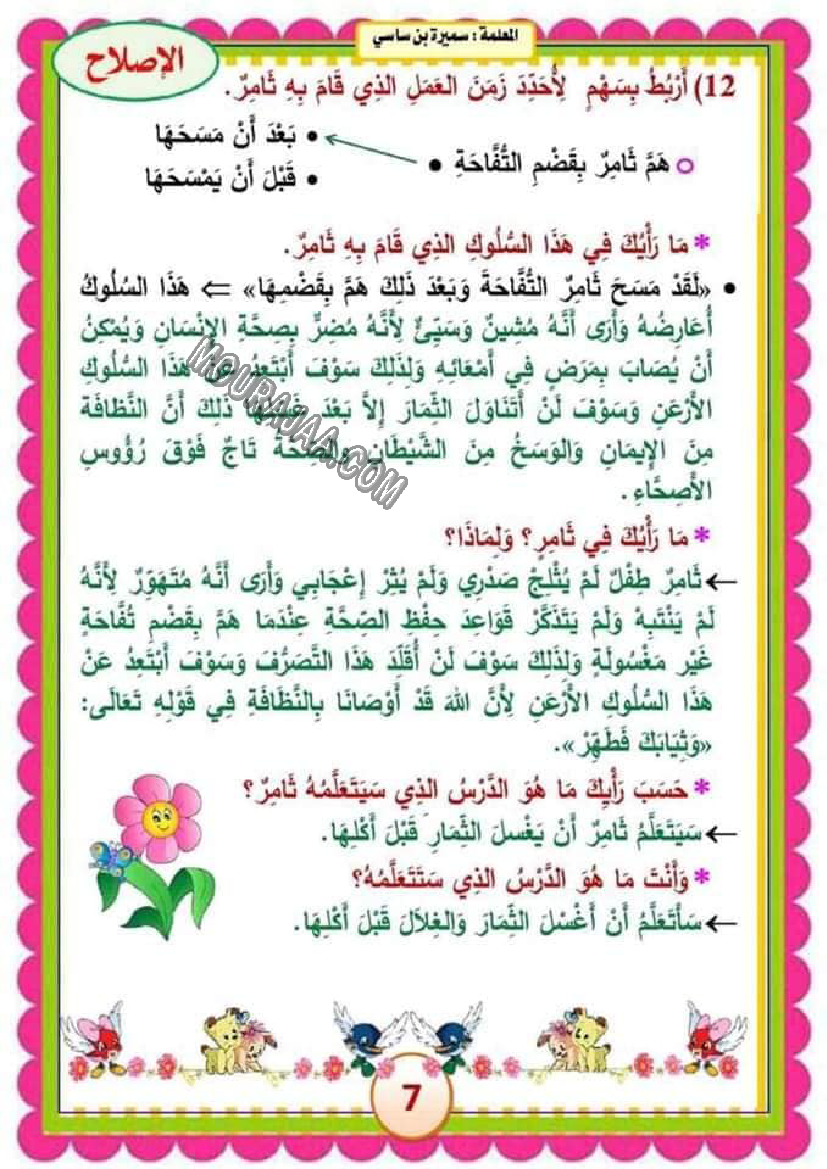 المعلمة : سميرة بن ساسي
الإصلاح
12) أَرْبُطُ بِسَهْمٍ لِأُحَدِّدَ زَمَنَ العَمَلِ الذِي قَامَ بِهِ ثَامِرٌ.
○ هَمَّ ثَامِرٌ بِقَضْمِ التُّفَّاحَةِ •
• بَعْدَ أَنْ مَسَحَهَا
• قَبْلَ أَنْ يَمْسَحَهَا
* مَا رَأْيُكَ فِي هَذَا السُّلُوكِ الذِي قَامَ بِهِ ثَامِرٌ.
• «لَقَدْ مَسَحَ ثَامِرٌ التُّفَّاحَةَ وَبَعْدَ ذَلِكَ هَمَّ بِقَضْمِهَا» ⇐ هَذَا السُلُوكُ
أُعَارِضُهُ وَأَرَى أَنَّهُ مُشِينٌ وَسَيِّئٌ لِأَنَّهُ مُضِرٌّ بِصِحَّةِ الإِنْسَانِ وَيُمْكِنُ
أَنْ يُصَابَ بِمَرَضٍ فِي أَمْعَائِهِ وَلِذَلِكَ سَوْفَ أَبْتَعِدُ عَنْ هَذَا السُّلُوكِ
الأَرْعَنِ وَسَوْفَ لَنْ أَتَنَاوَلَ الثِّمَارَ إِلاَّ بَعْدَ غَسْلِهَا ذَلِكَ أَنَّ النَّظَافَةَ
مِنَ الإِيمَانِ وَالوَسَخُ مِنَ الشَّيْطَانِ وَالصِّحَّةُ تَاجٌ فَوْقَ رُؤُوسِ
الأَصِحَّاءِ.
* مَا رَأْيُكَ فِي ثَامِرٍ؟ وَلِمَاذَا؟
← ثَامِرٌ طِفْلٌ لَمْ يُثْلِجْ صَدْرِي وَلَمْ يُثْرْ إِعْجَابِي وَأَرَى أَنَّهُ مُتَهَوِّرٌ لِأَنَّهُ
لَمْ يَنْتَبِهْ وَلَمْ يَتَذَكَّرْ قَوَاعِدَ حِفْظِ الصِّحَّةِ عِنْدَمَا هَمَّ بِقَضْمِ تُفَّاحَةٍ
غَيْرِ مَغْسُولَةٍ وَلِذَلِكَ سَوْفَ لَنْ أُقَلِّدَ هَذَا التَّصَرُّفَ وَسَوْفَ أَبْتَعِدُ عَنْ
هَذَا السُّلُوكِ الأَرْعَنِ لِأَنَّ اللهَ قَدْ أَوْصَانَا بِالنَّظَافَةِ فِي قَوْلِهِ تَعَالَى:
«وَثِيَابَكَ فَطَهِّرْ».
* حَسَبَ رَأْيِكَ مَا هُوَ الدَّرْسُ الذِي سَيَتَعَلَّمُهُ ثَامِرٌ؟
← سَيَتَعَلَّمُ ثَامِرٌ أَنْ يَغْسِلَ الثِّمَارَ قَبْلَ أَكْلِهَا.
* وَأَنْتَ مَا هُوَ الدَّرْسُ الذِي سَتَتَعَلَّمُهُ؟
← سَأَتَعَلَّمُ أَنْ أَغْسْلَ الثِّمَارَ وَالغِلاَلَ قَبْلَ أَكْلِهَا.
7
MOURAJAA.COM